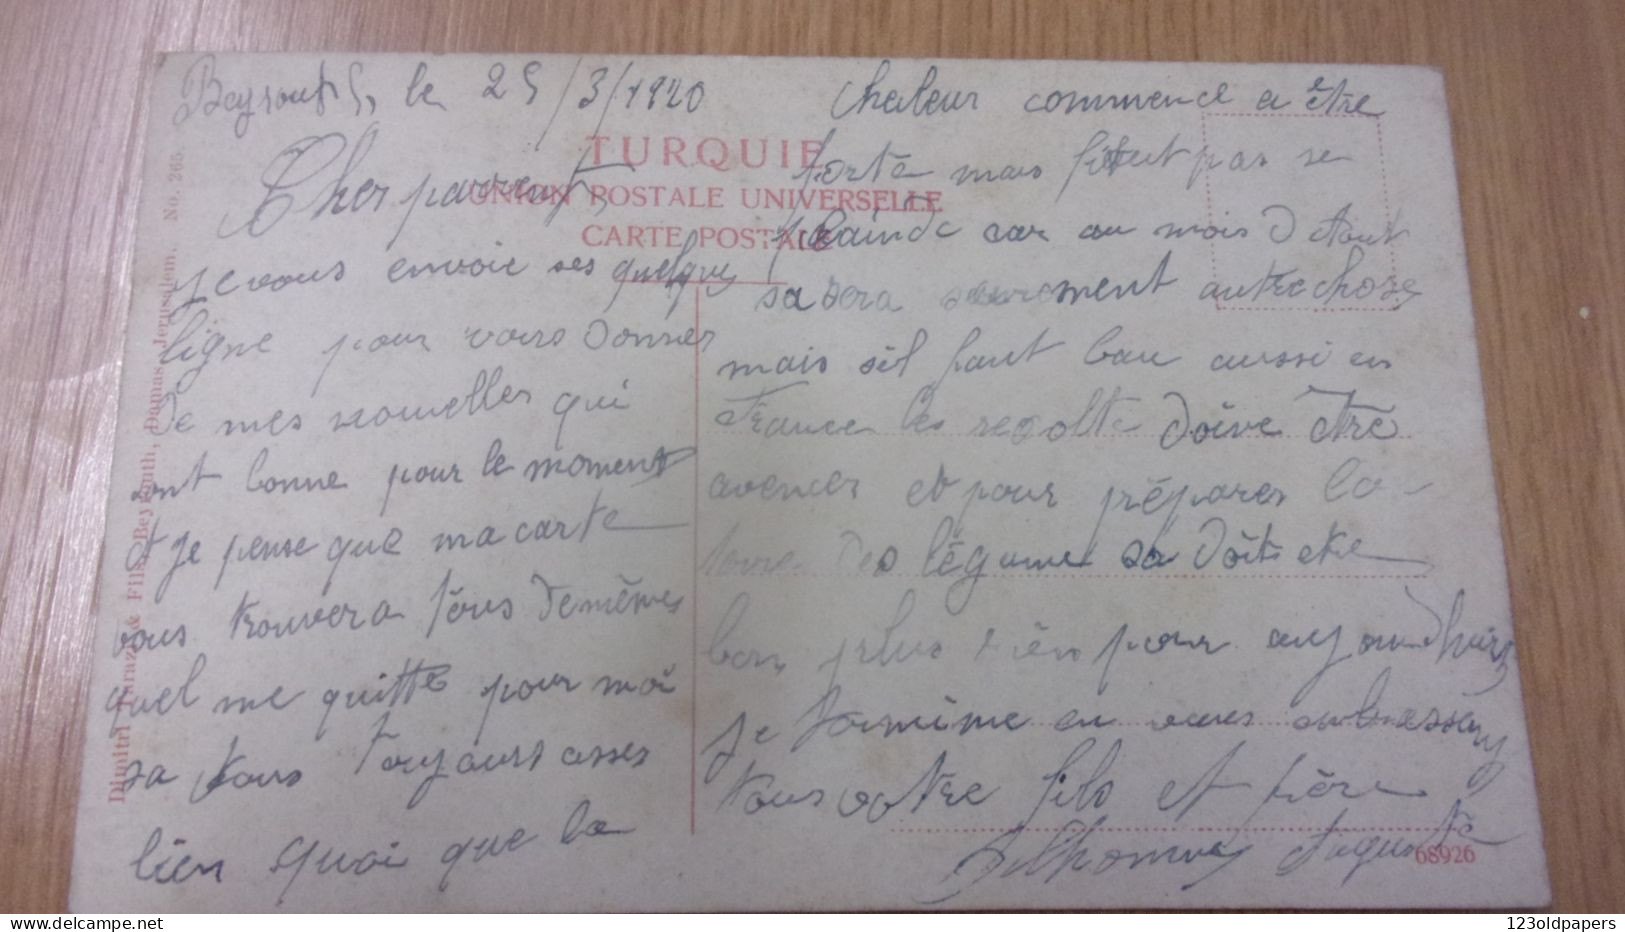 Beyrouth, le 25/3/1920
Cher parrents,
je vous envoie ses quelques
ligne pour vous donner
de mes nouvelles qui
sont bonne pour le moment
et je pense que ma carte
vous trouvera tous de mêmes
quel me quitte pour moi
sa vous toujours asses
bien quoi que la
chaleur commence a être
forte mais faut pas se
plainde car au mois d Aout
sa sera surement autre chose
mais s'il faut bau aussi en
France les recolte doive être
avencer et pour préparer la
des légume sa doit etre
bon plus rien pour aujourd'huis
je termine en vous embrassan
tous votre fils et frère
Auguste
TURQUIE
UNION POSTALE UNIVERSELLE
CARTE POSTALE
Dimitri Tarazi & Fils, Beyrouth, Damas, Jerusalem. No. 265
68926
123oldpapers